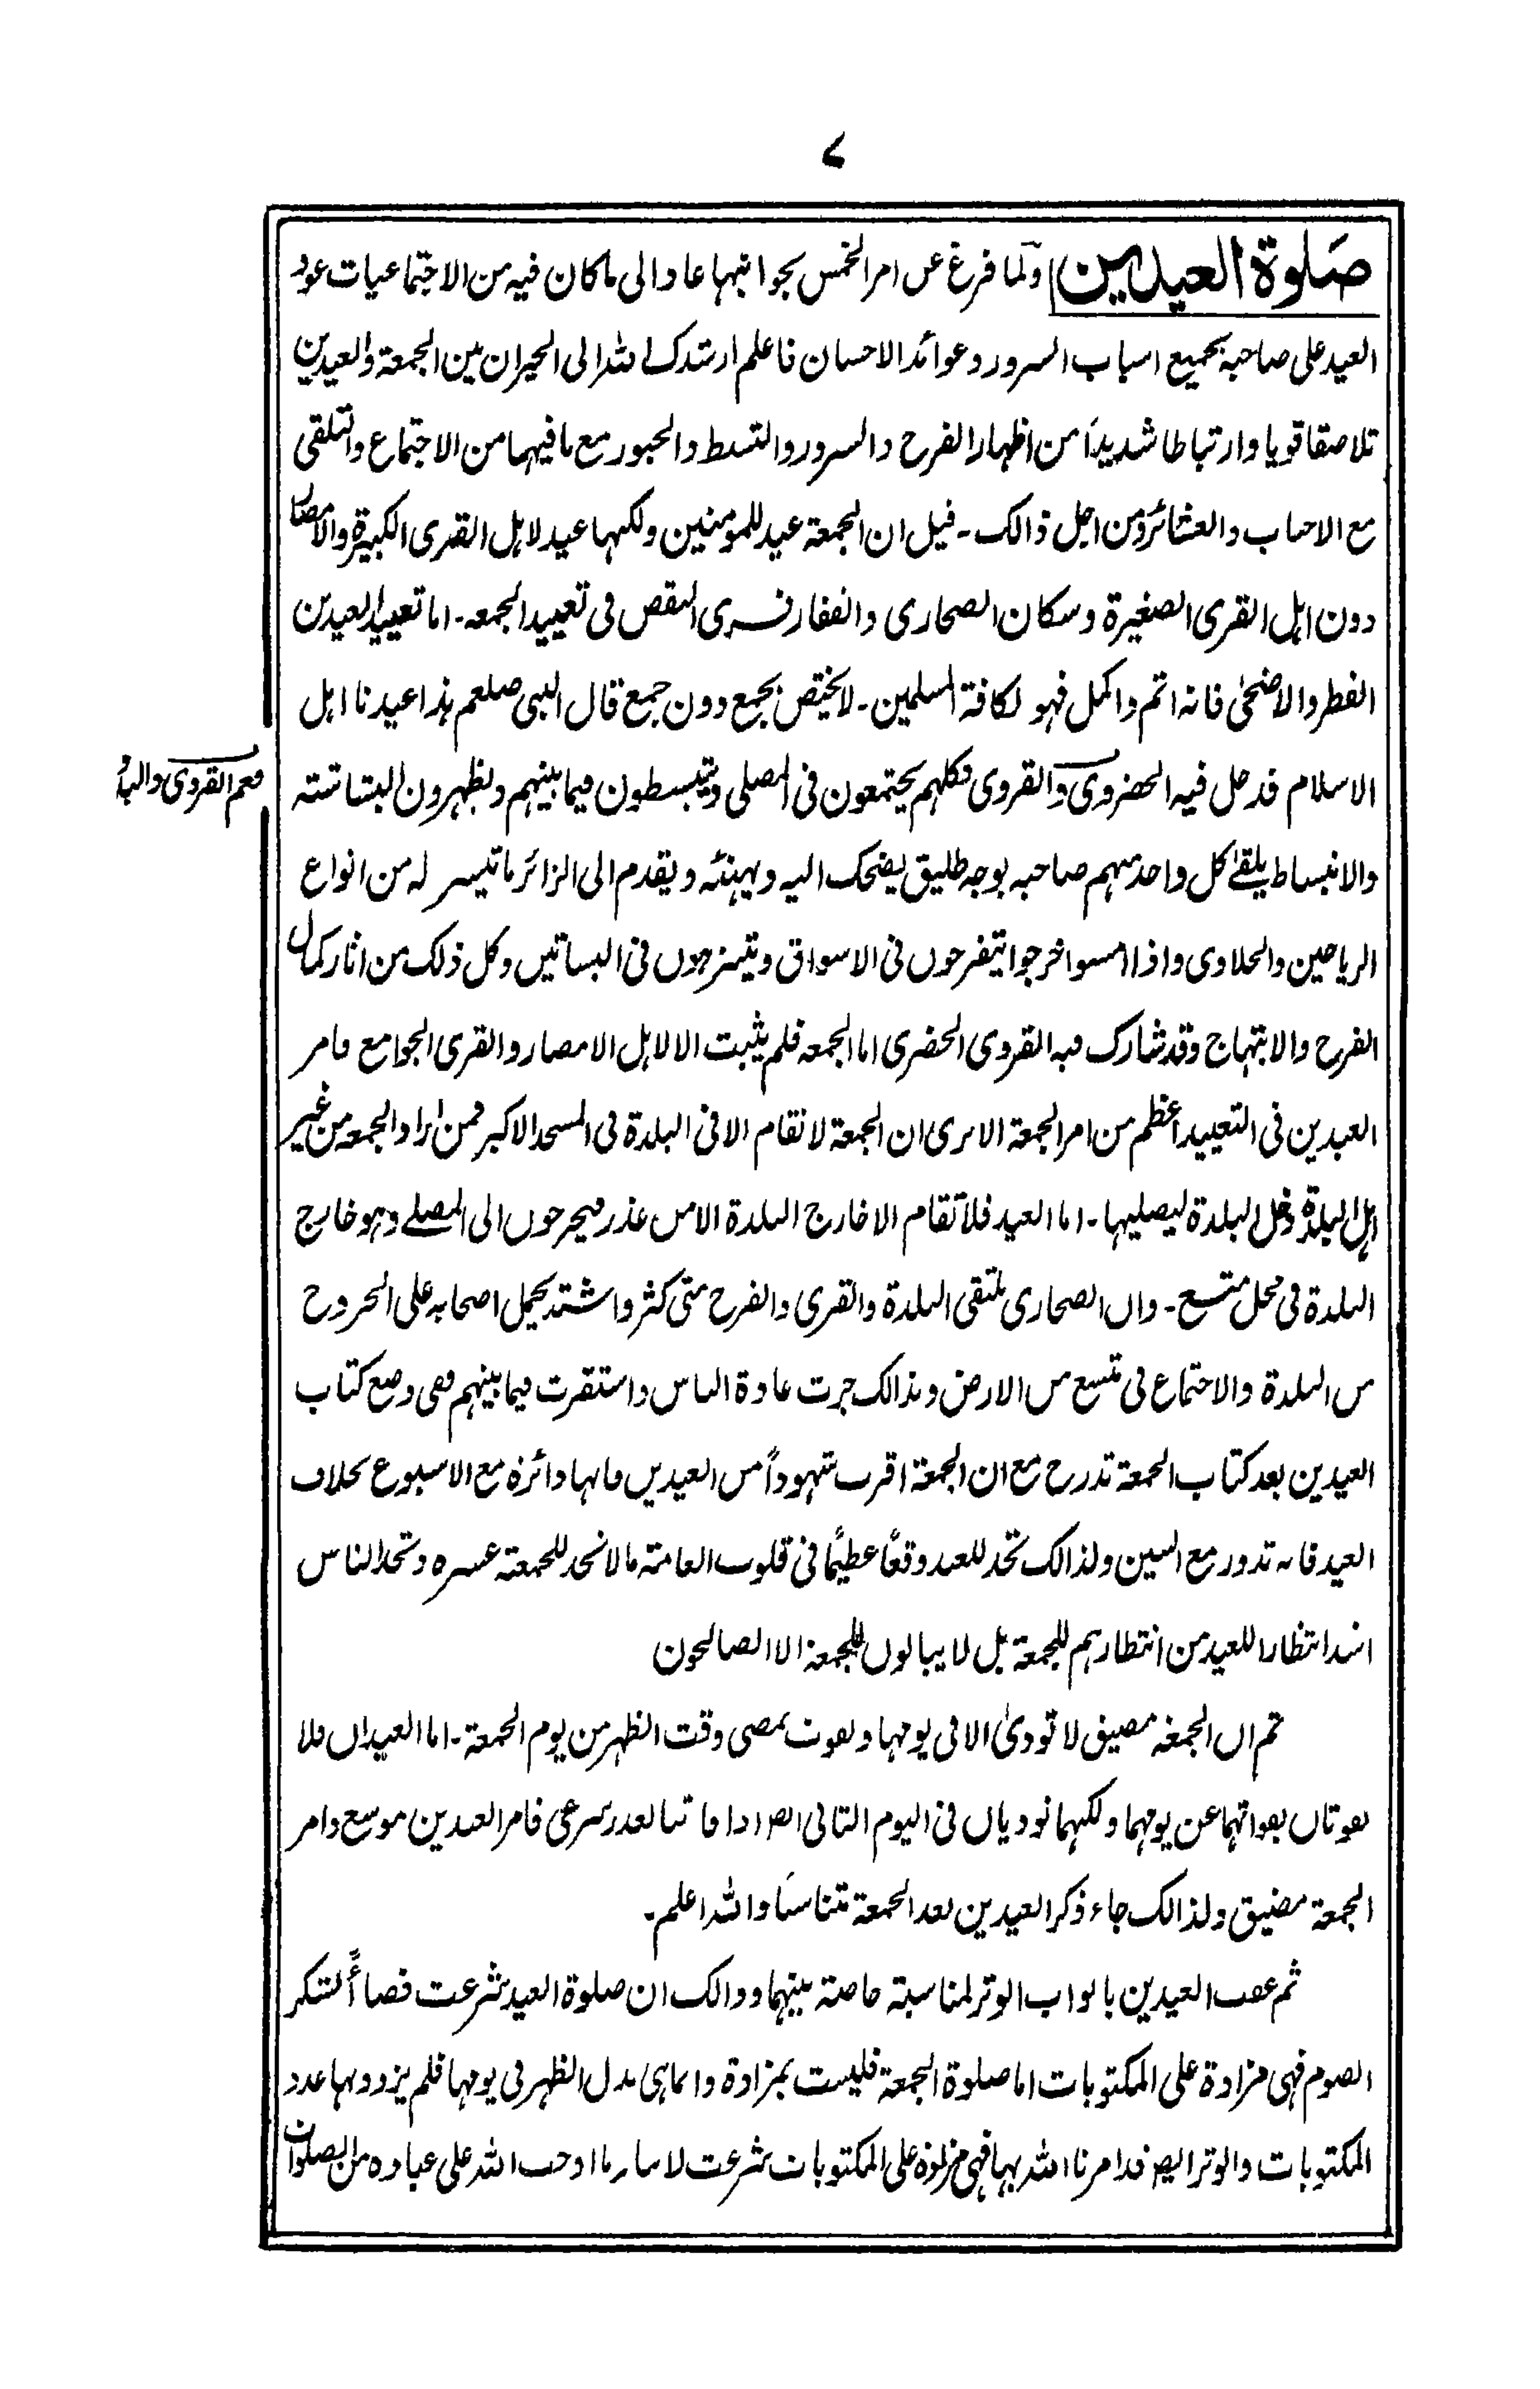 ۷
صلوة العيدين ولما فرغ عن امر الخمس بجوانبها عاد الى ما كان فيه من الاجتماعيات عود
العيد على صاحبه بجميع اسباب السرور وعوائد الاحسان فاعلم ارشدك الله الى الخيران بين الجمعة والعيدين
تلاصقا قويا وارتباطا شديدًا من اظهار الفرح والسرور والتبسط والحبور مع ما فيهما من الاجتماع والتلقى
مع الاحباب والعشائر ومن اجل ذالك - قيل ان الجمعة عيد للمومنين ولكنها عيد لاهل القرى الكبيرة والامصار
دون اهل القرى الصغيرة وسكان الصحارى والقفار فسرى النقص فى تعييد الجمعه - اما تعييد العيدين
الفطر والاضحى فانه اتم واكمل فهو لكافة المسلمين - لا يختص بجمع دون جمع قال النبى صلعم هذا عيدنا اهل
الاسلام فدخل فيه الحضروى والقروى فكلهم يجتمعون فى المصلى ويتبسطون فيما بينهم ويظهرون البشاشته
فعم القروى والبدو
والانبساط يلقى كل واحد منهم صاحبه بوجه طليق يضحك اليه ويهنئه ويقدم الى الزائر ما تيسر له من انواع
الرياحين والحلاوى واذا امسوا خرجوا يتفرحون فى الاسواق ويتنزهون فى البساتين وكل ذلك من اثار كمال
الفرح والابتهاج وقد شارك فيه القروى الحضرى اما الجمعه فلم يثبت الا لاهل الامصار والقرى الجوامع فامر
العيدين فى التعييد اعظم من امر الجمعة الا ترى ان الجمعة لا تقام الا فى البلدة فى المسجد الاكبر فمن اراد الجمعه من غير
اهل البلدة دخل البلدة ليصليها - اما العيد فلا تقام الا خارج البلدة الا من عذر فيخرجون الى المصلے وهو خارج
البلدة فى محل متسع - وان الصحارى ملتقى البلدة والقرى والفرح متى كثر واشتد يحمل اصحابه على الخروج
من البلدة والاجتماع فى متسع من الارض وبذالك جرت عادة الناس واستقرت فيما بينهم ففى وضع كتاب
العيدين بعد كتاب الجمعة تدرج مع ان الجمعة اقرب شهودًا من العيدين فانها دائرة مع الاسبوع بخلاف
العيد فانه تدور مع السنين ولذالك تجد للعيد وقعًا عظيمًا فى قلوب العامته ما لا تجد للجمعته عشره وتجد الناس
اشد انتظارا للعيد من انتظارهم للجمعة بل لا يبالون للجمعة الا الصالحون
ثم ان الجمعة مضيق لا تودى الا فى يومها وتفوت بمضى وقت الظهر من يوم الجمعة - اما العيدان فلا
يفوتان بفواتهما عن يومهما ولكنهما توديان فى اليوم الثانى ايضا اذا فاتتا لعذر شرعى فامر العيدين موسع وامر
الجمعة مضيق ولذالك جاء ذكر العيدين بعد الجمعة متناسبًا والله اعلم -
ثم عقب العيدين بابواب الوتر لمناسبته خاصته بينهما وذالك ان صلوة العيد شرعت قضاءً لشكر
الصوم فهى مزادة على المكتوبات اما صلوة الجمعة فليست بمزادة وانما هى بدل الظهر فى يومها فلم يزد بها عدد
المكتوبات والوتر ايضا قد امرنا الله بها فهى مزادة على المكتوبات شرعت لا سار ما اوجب الله على عباده من الصلوات